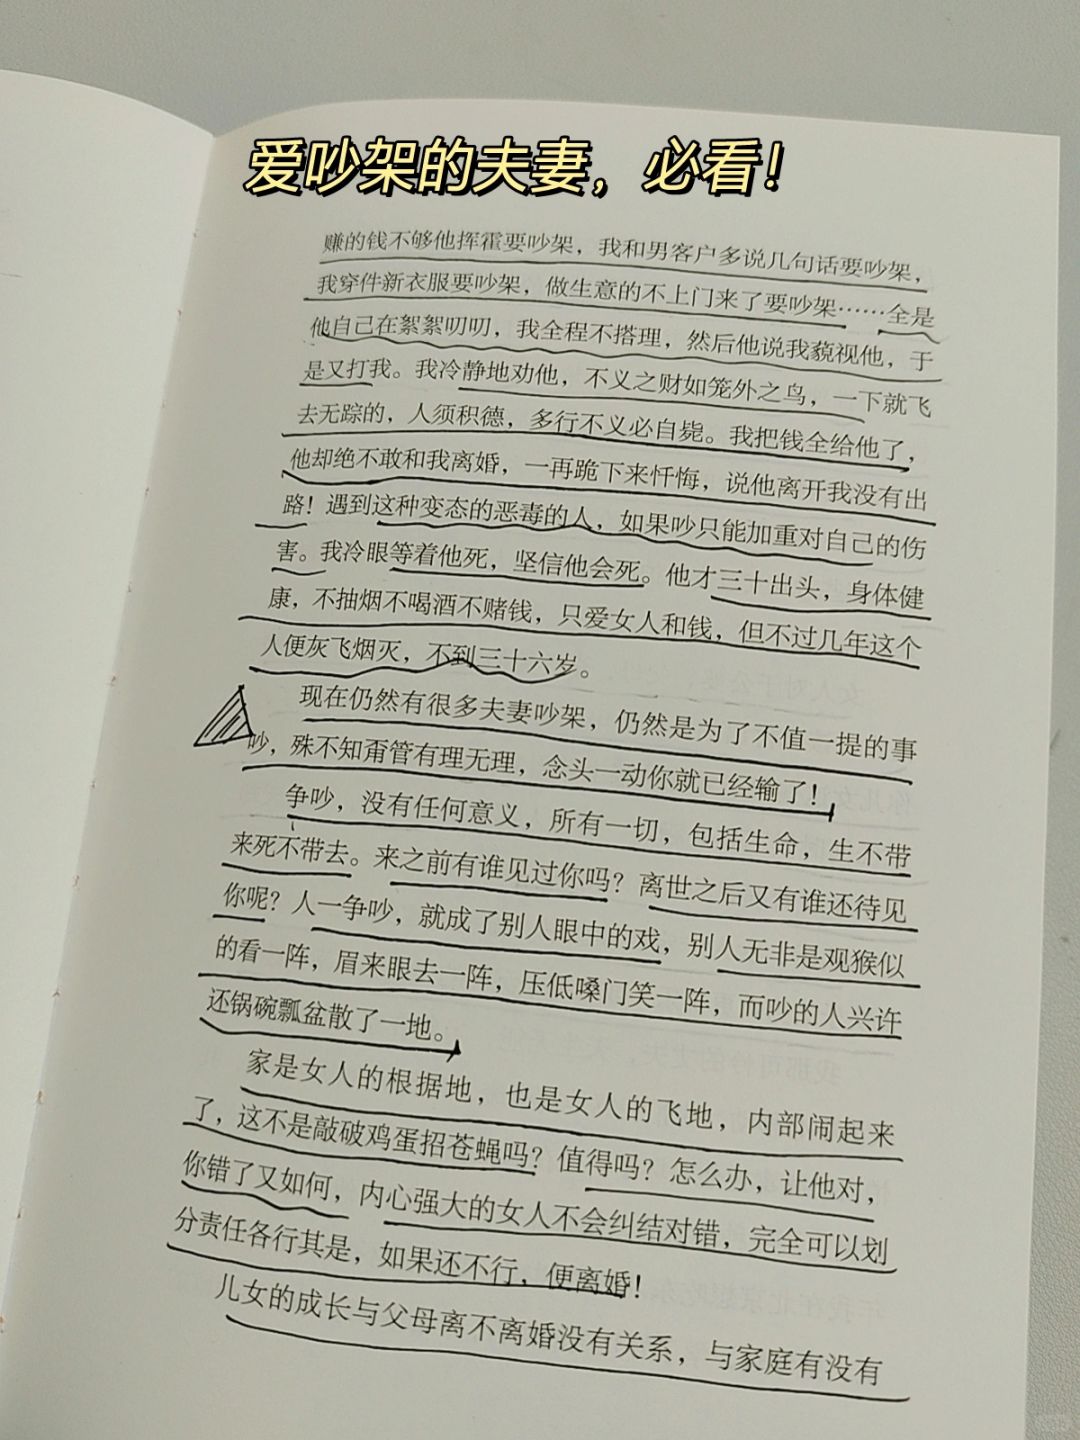 爱吵架的夫妻，必看！
赚的钱不够他挥霍要吵架，我和男客户多说几句话要吵架，
我穿件新衣服要吵架，做生意的不上门来了要吵架……全是
他自己在絮絮叨叨，我全程不搭理，然后他说我藐视他，于
是又打我。我冷静地劝他，不义之财如笼外之鸟，一下就飞
去无踪的，人须积德，多行不义必自毙。我把钱全给他了，
他却绝不敢和我离婚，一再跪下来忏悔，说他离开我没有出
路！遇到这种变态的恶毒的人，如果吵只能加重对自己的伤
害。我冷眼等着他死，坚信他会死。他才三十出头，身体健
康，不抽烟不喝酒不赌钱，只爱女人和钱，但不过几年这个
人便灰飞烟灭，不到三十六岁。
现在仍然有很多夫妻吵架，仍然是为了不值一提的事
吵，殊不知甭管有理无理，念头一动你就已经输了！
争吵，没有任何意义，所有一切，包括生命，生不带
来死不带去。来之前有谁见过你吗？离世之后又有谁还待见
你呢？人一争吵，就成了别人眼中的戏，别人无非是观猴似
的看一阵，眉来眼去一阵，压低嗓门笑一阵，而吵的人兴许
还锅碗瓢盆散了一地。
家是女人的根据地，也是女人的飞地，内部闹起来
了，这不是敲破鸡蛋招苍蝇吗？值得吗？怎么办，让他对，
你错了又如何，内心强大的女人不会纠结对错，完全可以划
分责任各行其是，如果还不行，便离婚！
儿女的成长与父母离不离婚没有关系，与家庭有没有